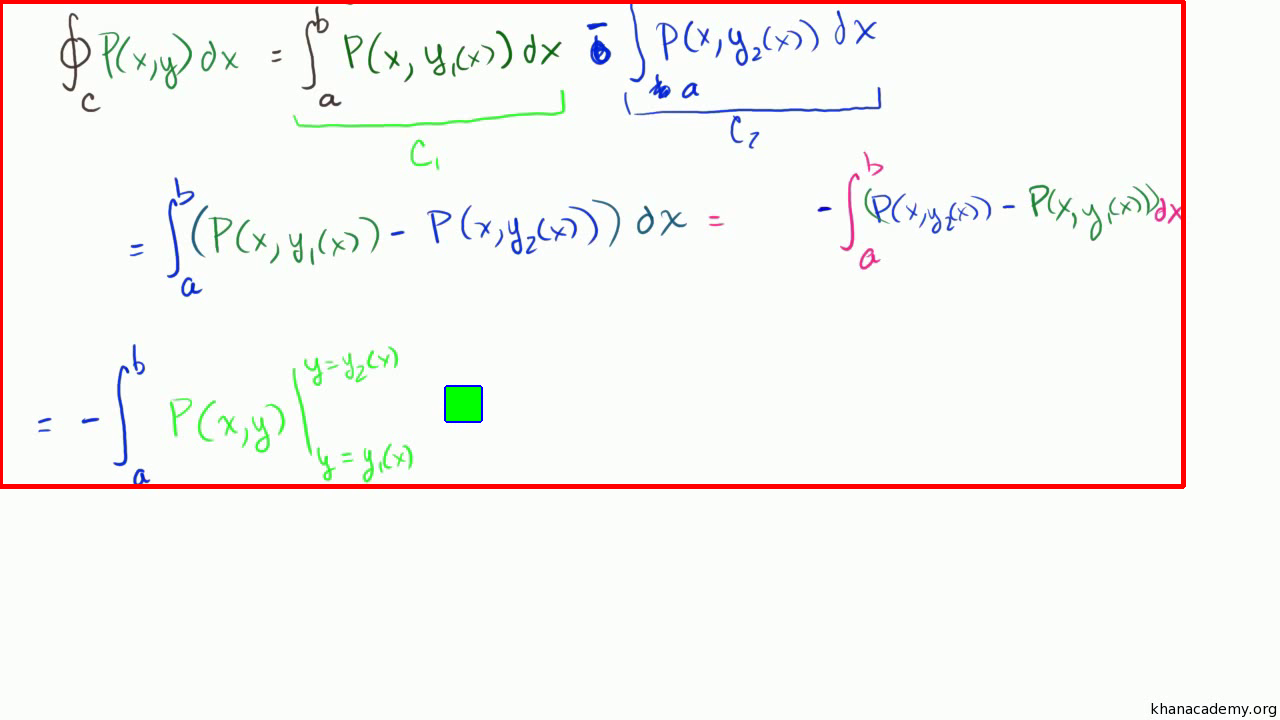 ∮_C P(x,y) dx = ∫_a^b P(x, y₁(x)) dx - ∫_a P(x, y₂(x)) dx
C₁ C₂
= ∫_a^b (P(x, y₁(x)) - P(x, y₂(x))) dx = - ∫_a^b (P(x, y₂(x)) - P(x, y₁(x))) dx
= - ∫_a^b P(x,y) | y = y₂(x)
y = y₁(x)
khanacademy.org